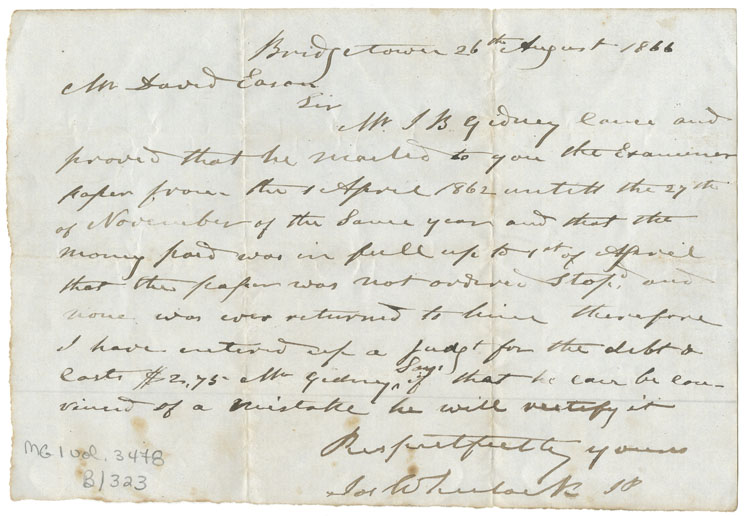 Bridgetown 26th August 1866
Mr David Eason
Sir
Mr. I B. Gidney came and
proved that he mailed to you the Examiner
paper from the 1 April 1862 untill the 27th
of November of the Same year and that the
money paid was in full up to 1st of April
that the paper was not ordered Stopd. and
none was ever returned to him therefore
I have entered up a Judgt for the debt &
Costs $2,75 Mr Gidney Says if that he can be con-
vinced of a mistake he will rectify it
Respectfully yours
Jos Wheelock JP
MG 1 vol. 3478
B/323